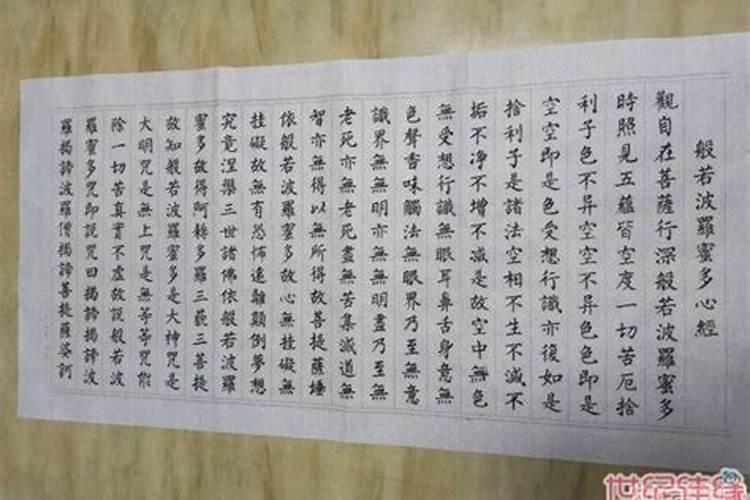 般若波羅蜜多心經
觀自在菩薩行深般若波羅蜜多
時照見五蘊皆空度一切苦厄捨
利子色不异空空不异色色即是
空空即是色受想行識亦復如是
捨利子是諸法空相不生不滅不
垢不净不增不减是故空中無色
無受想行識無眼耳鼻舌身意無
色聲香味觸法無眼界乃至無意
識界無無明亦無無明盡乃至無
老死亦無老死盡無苦集滅道無
智亦無得以無所得故菩提薩埵
依般若波羅蜜多故心無挂礙無
挂礙故無有恐怖遠離顛倒夢想
究竟涅槃三世諸佛依般若波羅
蜜多故得阿耨多羅三藐三菩提
故知般若波羅蜜多是大神咒是
大明咒是無上咒是無等等咒能
除一切苦真實不虛故說般若波
羅蜜多咒即說咒曰揭諦揭諦波
羅揭諦波羅僧揭諦菩提薩婆訶
世纪佳缘